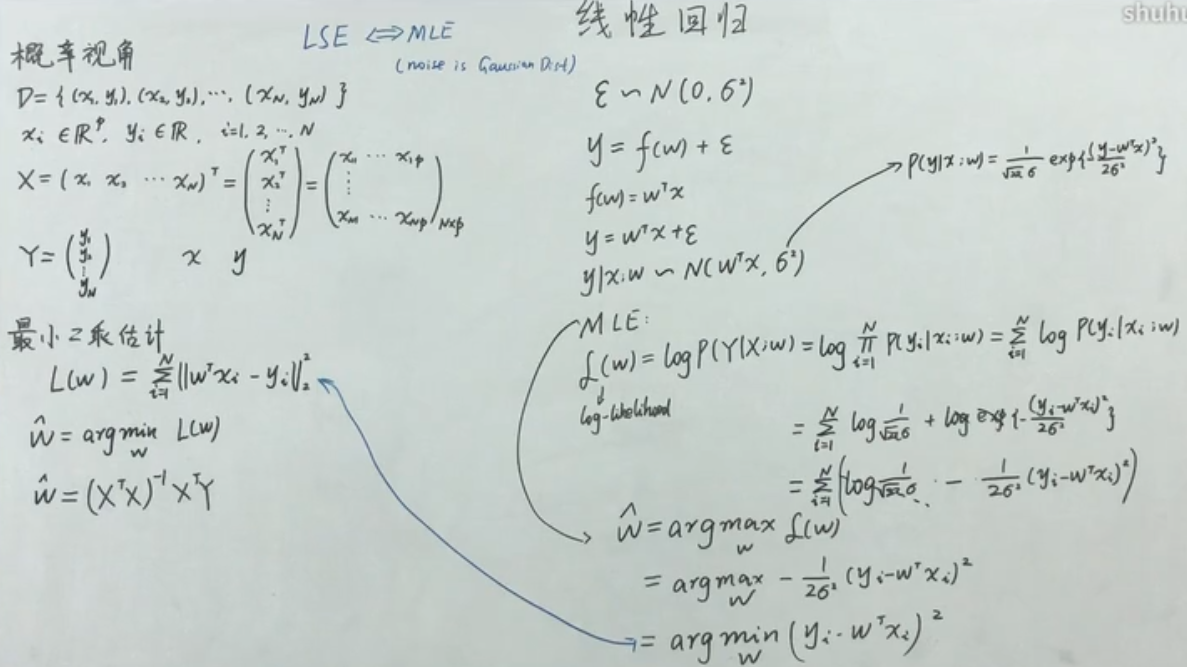 shuhu
线性回归
LSE ⟺ MLE
(noise is Gaussian Dist)
概率视角
D = {(x₁, y₁), (x₂, y₂), ⋯, (x_N, y_N)}
xᵢ ∈ ℝᵖ, yᵢ ∈ ℝ, i=1, 2, ⋯, N
X = (x₁ x₂ ⋯ x_N)ᵀ = (x₁ᵀ x₂ᵀ ⋮ x_Nᵀ) = (x₁₁ ⋯ x₁p ⋮ x_N1 ⋯ x_Np)_N×p
Y = (y₁ y₂ ⋮ y_N) x y
最小2乘估计
L(w) = Σ_{i=1}^N ||wᵀxᵢ - yᵢ||₂²
ŵ = argmin_w L(w)
ŵ = (XᵀX)⁻¹XᵀY
ε ~ N(0, σ²)
y = f(w) + ε
f(w) = wᵀx
y = wᵀx + ε
y|x;w ~ N(wᵀx, σ²)
P(y|x;w) = 1/(√2π σ) exp{-(y-wᵀx)²/2σ²}
MLE:
ℒ(w) = log P(Y|X;w) = log ∏_{i=1}^N P(yᵢ|xᵢ;w) = Σ_{i=1}^N log P(yᵢ|xᵢ;w)
log-likelihood
= Σ_{i=1}^N log 1/(√2π σ) + log exp{-(yᵢ-wᵀxᵢ)²/2σ²}
= Σ_{i=1}^N (log 1/(√2π σ) - 1/2σ² (yᵢ-wᵀxᵢ)²)
ŵ = argmax_w ℒ(w)
= argmax_w - 1/2σ² (yᵢ-wᵀxᵢ)²
= argmin_w (yᵢ - wᵀxᵢ)²